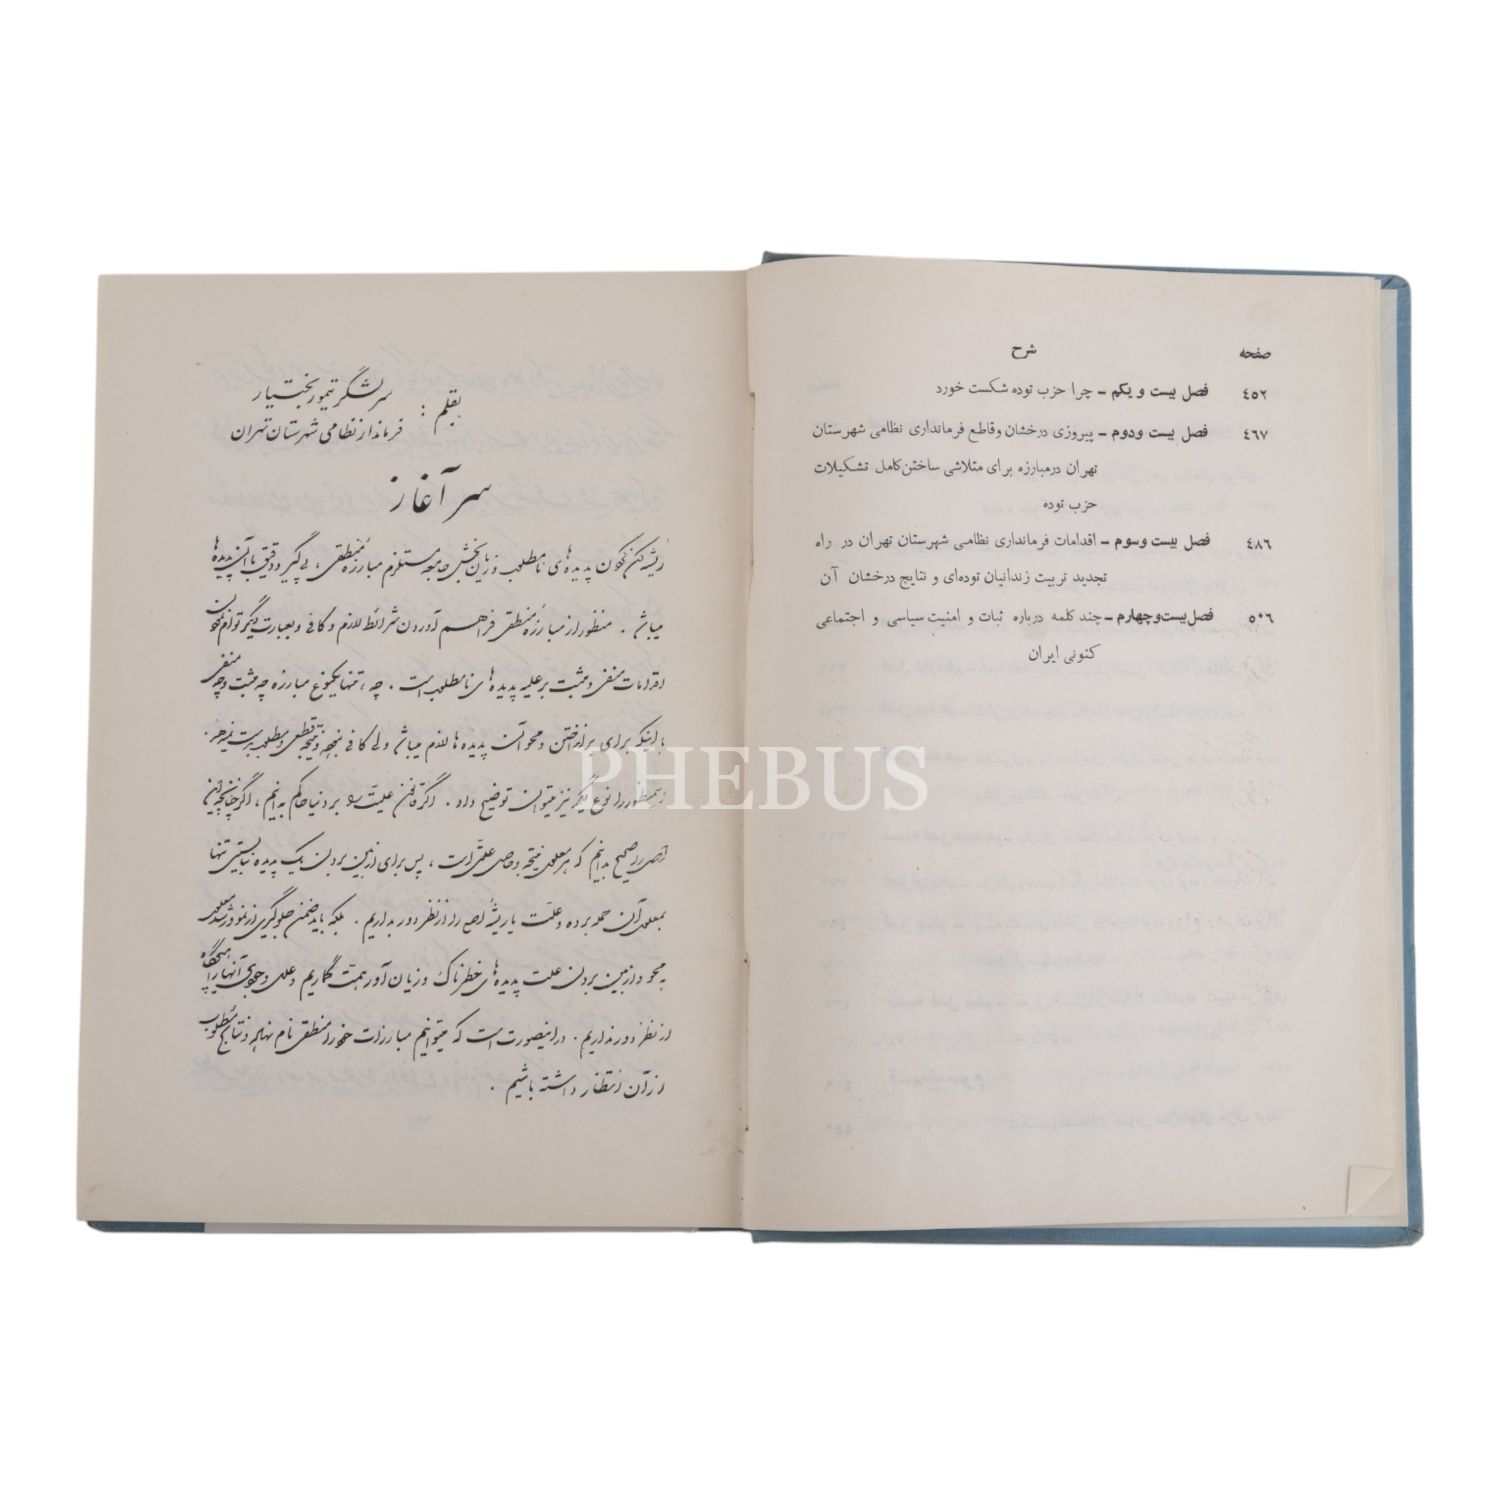 صفحه شرح
٤٥٢ فصل بیست و یکم – چرا حزب توده شکست خورد
٤٦٧ فصل بیست ودوم – پیروزی درخشان وقاطع فرمانداری نظامی شهرستان
تهران درمبارزه برای متلاشی ساختن کامل تشکیلات
حزب توده
٤٨٦ فصل بیست وسوم – اقدامات فرمانداری نظامی شهرستان تهران در راه
تجدید تربیت زندانیان توده‌ای و نتایج درخشان آن
٥٠٦ فصل بیست وچهارم – چند کلمه درباره ثبات و امنیت سیاسی و اجتماعی
کنونی ایران
بقلم : سرلشگر تیمور بختیار
فرماندار نظامی شهرستان تهران
سرآغاز
ریشه کن کردن پدیده‌های نامطلوب و زیان بخش جامعه مستلزم مبارزه منطقی ، پی گیر و دقیق با آن پدیده‌ها
میباشد . منظور از مبارزه منطقی فراهم آوردن شرائط لازم و کافی و بعبارت دیگر توأم کردن
اقدامات منفی و مثبت بر علیه پدیده‌های نامطلوب است . چه ، تنها یکنوع مبارزه چه مثبت و چه منفی
با اینکه برای برانداختن و محو آن پدیده‌ها لازم میباشد ولی کافی نبوده و نتیجه قطعی و مطلوب بدست نمیدهد.
اینمنظور را نوع دیگر نیز میتوان توضیح داد . اگر قانون علیت را بر دنیا حاکم بدانیم ، اگر چنانچه این
اصل را صحیح بدانیم که هر معلولی نتیجه وجودی علتی است ، پس برای از بین بردن یک پدیده نبایستی تنها
بمعلول آن حمله برده و علت یا ریشه اصلی را از نظر دور بداریم . بلکه باید ضمن جلوگیری از نمو و رشد معلول
به محو و از بین بردن علت پدیده‌های خطرناک و زیان آور همت گماریم و علل وجودی آنها را هیچگاه
از نظر دور نداریم . در اینصورت است که میتوانیم مبارزات خود را منطقی نام نهاده و نتایج مطلوب
از آن انتظار داشته باشیم .
PHEBUS